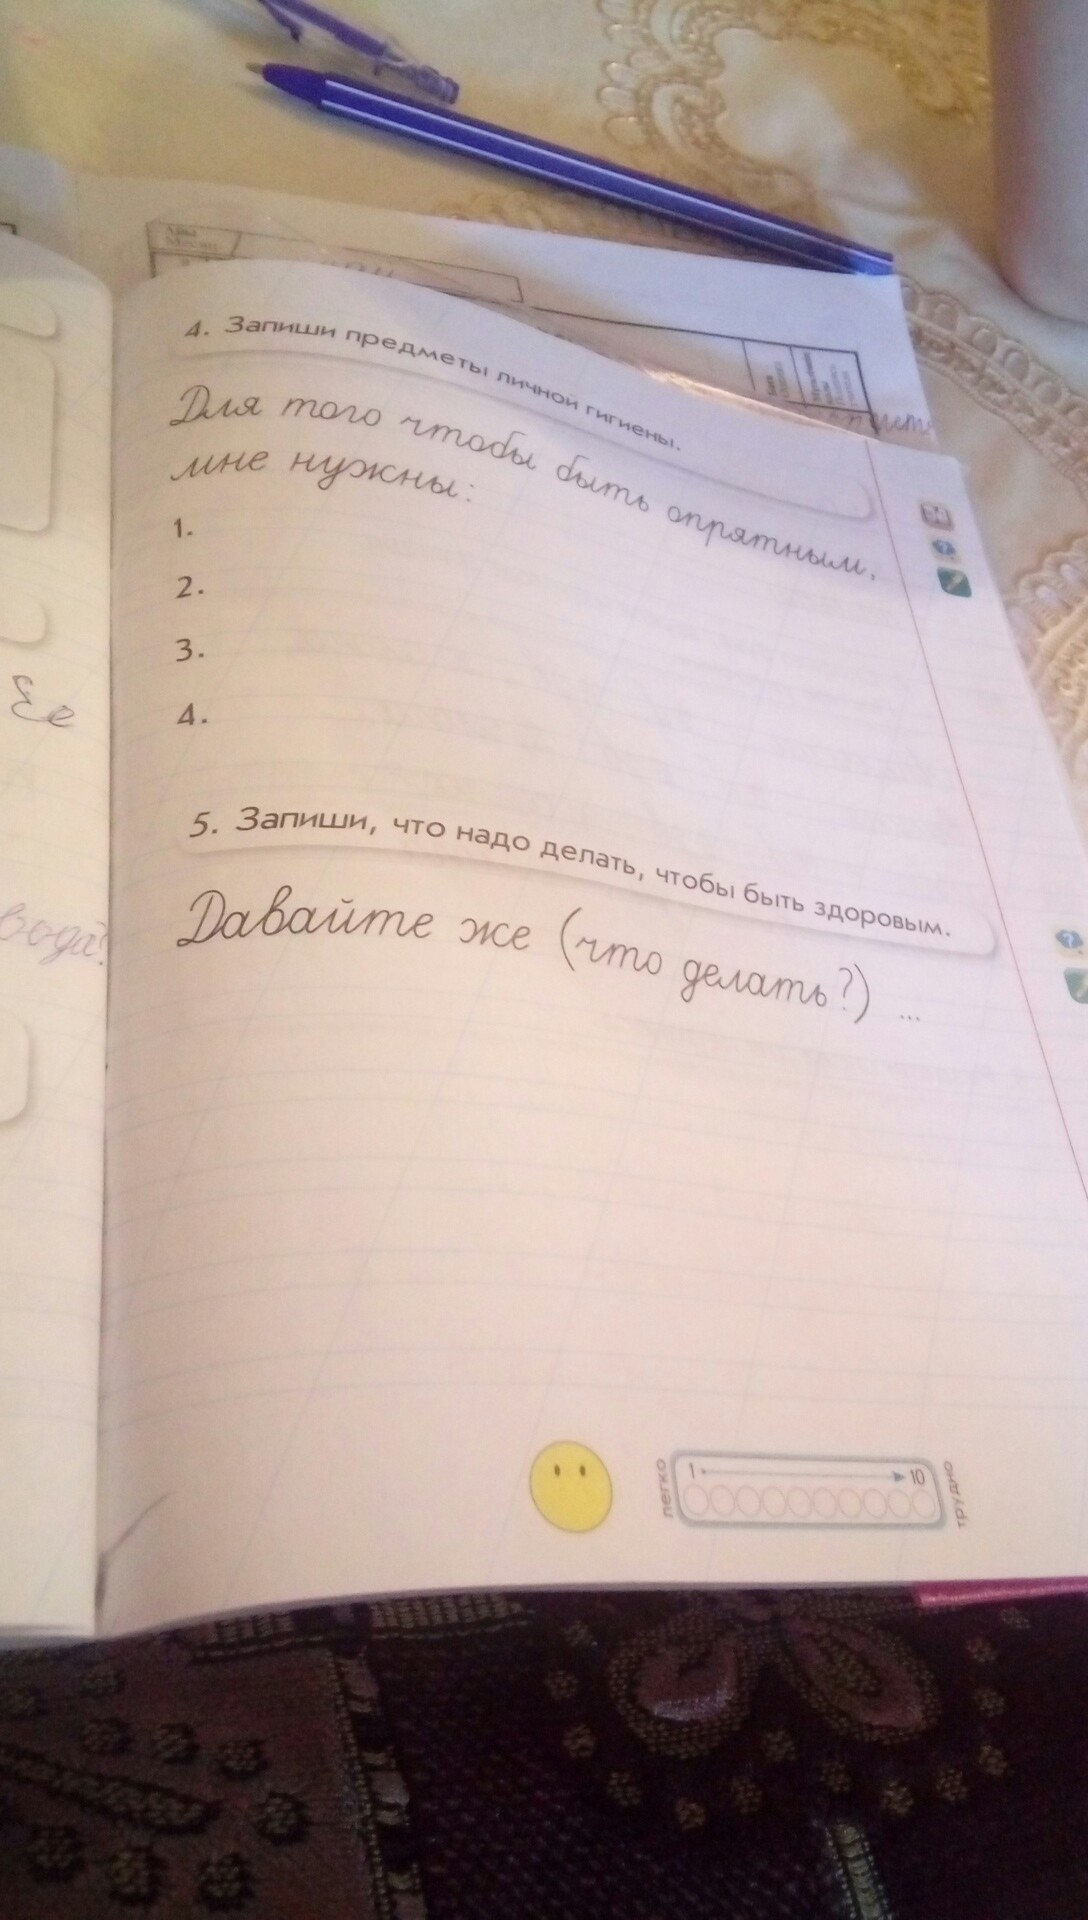 4. Запиши предметы личной гигиены.
Для того чтобы быть опрятным,
мне нужны:
1.
2.
3.
4.
5. Запиши, что надо делать, чтобы быть здоровым.
Давайте же (что делать?) ...
легко 1 10 трудно
вода?